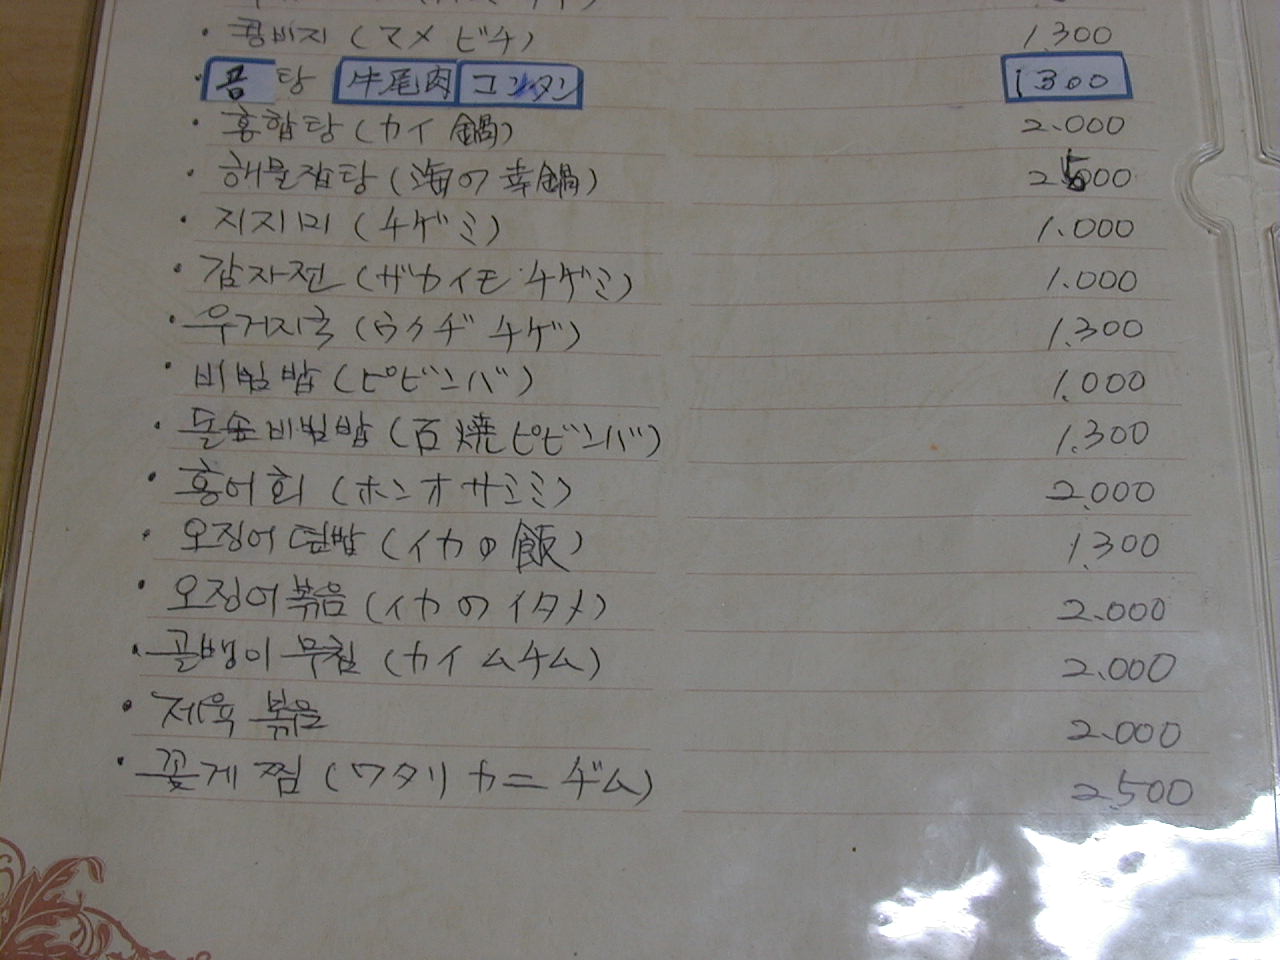 · 콩비지 (マメ ビチ) 1.300
· 곰탕 牛尾肉 コンタン 1300
· 홍합탕 (カイ 鍋) 2.000
· 해물잡탕 (海の幸鍋) 2500
· 지지미 (チゲミ) 1.000
· 감자전 (ザカイモ チゲミ) 1.000
· 우거지국 (ウクヂ チゲ) 1.300
· 비빔밥 (ピビンバ) 1.000
· 돌솥비빔밥 (石焼ピビンバ) 1.300
· 홍어회 (ホンオサミミ) 2.000
· 오징어덮밥 (イカの飯) 1.300
· 오징어볶음 (イカのイタメ) 2.000
· 골뱅이 무침 (カイムチム) 2.000
· 제육 볶음 2.000
· 꽃게찜 (ワタリカニヂム) 2.500